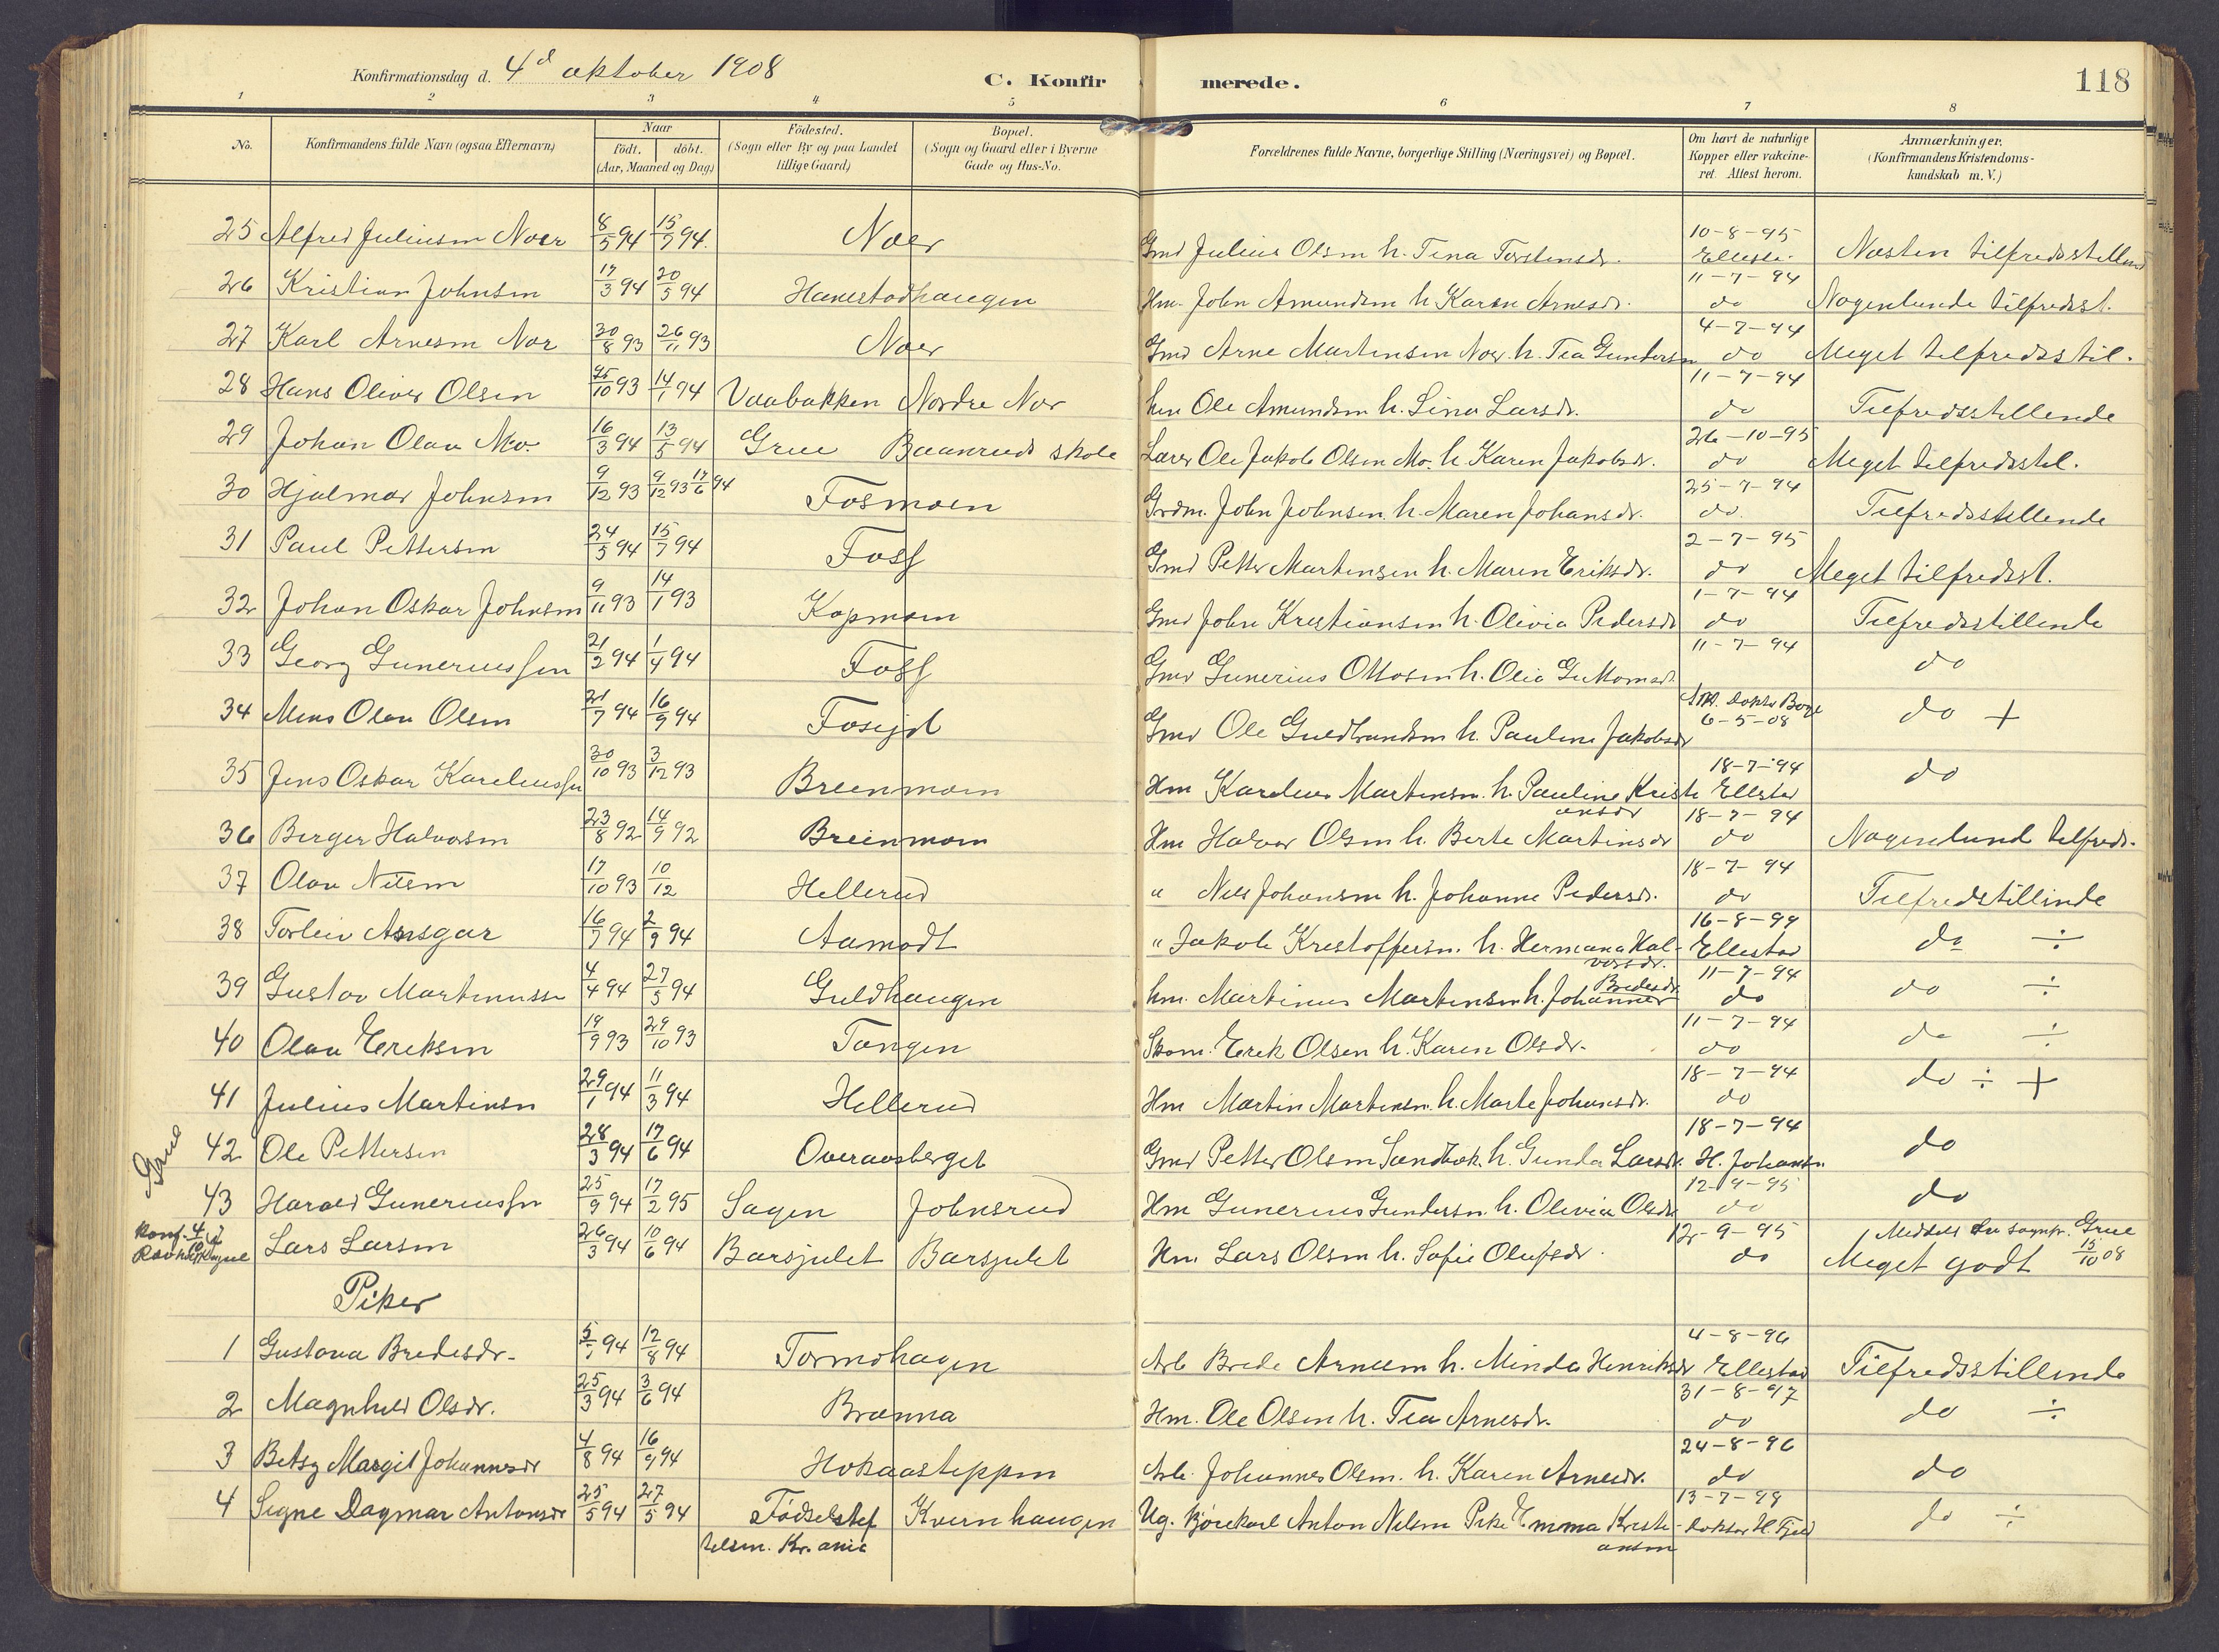 Konfirmationsdag d. 4d oktober 1908 C. Konfirmerede. 118
1 2 3 4 5 6 7 8
No. Konfirmandens fulde Navn (ogsaa Efternavn) Naar født. døbt. (Aar, Maaned og Dag) Födested. (Sogn eller By og paa Landet tillige Gaard) Bopæl. (Sogn og Gaard eller i Byerne Gade og Hus-No. Forældrenes fulde Navne, borgerlige Stilling (Næringsvei) og Bopæl. Om havt de naturlige Kopper eller vakcineret. Attest herom. Anmærkninger. (Konfirmandens Kristendomskundskab m. V.)
25 Alfred Juliusen Noer 8/5 94 15/7 94. Noer Gmd Julius Olsen h. Tina Torstensdr. 10-8-95 Næsten tilfredsstillend
26 Kristian Johnsen 17/3 94 20/5 94 Hanestadhaugen Hm. John Amundsen h Karen Arnesdr. 11-7-94 do Nogenlunde tilfredsst.
27 Karl Arnesen Nor 30/8 93 26/11 93 Noer Gmd Arne Martensen Noer. h. Tea Gundersen 4-7-94 do Meget tilfredsstil.
28 Hans Oliver Olsen 25/10 93 14/1 94 Vaabakken Nordre Nor hm Ole Amundsen h. Lina Larsdr. 11-7-94 do Tilfredsstillende
29 Johan Olav Mo. 16/3 94 13/5 94 Grue Baanruds skole Lærer Ole Jakob Olsen Mo. h. Karen Jakobsdr. 26-10-95 do Meget tilfredsstil.
30 Hjalmar Johnsen 9/12 93 9/12 93 17/6 94 Fosmoen Grdm. John Johnsen. h. Maren Johansdr. 25-7-94 do. Tilfredsstillende
31 Paul Pettersen 24/5 94 15/7 94 Foss Gmd Petter Martensen h. Maren Eriksdr. 2-7-95 do Meget tilfredsst.
32 Johan Oskar Johnsen 9/11 93 14/1 93 Kopmoen Gmd John Kristiansen h. Olivia Pedersdr 1-7-94 do Tilfredsstillende
33 Georg Guneriussen 21/2 94 1/4 94 Foss Gmd Gunerius Ottosen h. Olia Guttormsd. 11-7-94 do
34 Mens Olav Olsen 21/7 94 16/9 94 Gmd Ole Guldbrandsen h. Pauline Jakobsdr 6-5-08 do +
35 Jens Oskar Kareliussen 30/10 93 3/12 93 Breenmoen Hm Karelius Martensen. h. Pauline Kristiansdr 18-7-94 Ellestad do
36 Berger Halvorsen 23/8 92 14/9 92 Breenmoen Hm Halvor Olsen h. Berte Martinsdr 18-7-94 do Nogenlund tilfreds.
37 Olav Nilsen 17/10 93 10/12 Hellerud " Nils Johansen h. Johanne Pedersdr. 18-7-94 do Tilfredstillende
38 Torleiv Ansgar 16/7 94 2/9 94 Aamodt " Jakob Kristoffersn. h. Hermana Halvorsdr. 16-8-99 Ellestad do ÷
39 Gustav Martinussen 4/4 94 27/5 94 Guldhaugen hm. Martinus Martensen h. Johanne Bredesdr 11-7-94 do do ÷
40 Olav Eriksen 19/9 93 29/10 93 Tangen Skom. Erik Olsen h. Karen Olsdr. 11-7-94 do do ÷
41 Julius Martinsn 29/1 94 11/3 94 Hellerud Hm Martin Martensn. h. Marte Johansdr. 18-7-94 do do ÷ +
Grue 42 Ole Pettersen 28/3 94 17/6 94 Overaasberget Gmd Petter Olsen Sandbak. h. Gunda Larsdr. 18-7-94 H. Johansn do
43 Harald Guneriussen 25/9 94 17/2 95 Sagen Johnsrud Hm Gunerius Gundersn. h. Olivia Olsdr 12-9-95 do do
Konf. 4/10 Lars Larsen 26/3 94 10/6 94 Barsjulet Barsjulet Hm. Lars Olsen h. Sofie Olufsdr. 12-9-95 do Grue 15/10 08 Meget godt
Piker
1 Gustava Bredesdr. 5/1 94 12/8 94 Tormohagen Arb Brede Arnesen h. Minda Henriksdr 4-8-96 Ellestad Tilfredsstillende
2 Magnhild Olsdr. 25/3 94 3/6 94 Branna Hm. Ole Olsen h. Tea Arnesdr. 31-8-97 do do ÷
3 Betsy Margit Johannesdr 4/8 94 16/9 94 Hokaasteppen Arb. Johannes Olsen. h. Karen Arnesdr. 24-8-96 do do
4 Signe Dagmar Antonsdr 25/5 94 27/5 94 Fødselstif telsen. Kr.ania Kvernhaugen Ug. Kjørekarl Anton Nilsen Pike Emma Kristiansen 13-7-99 doktor H. Fjeld do ÷